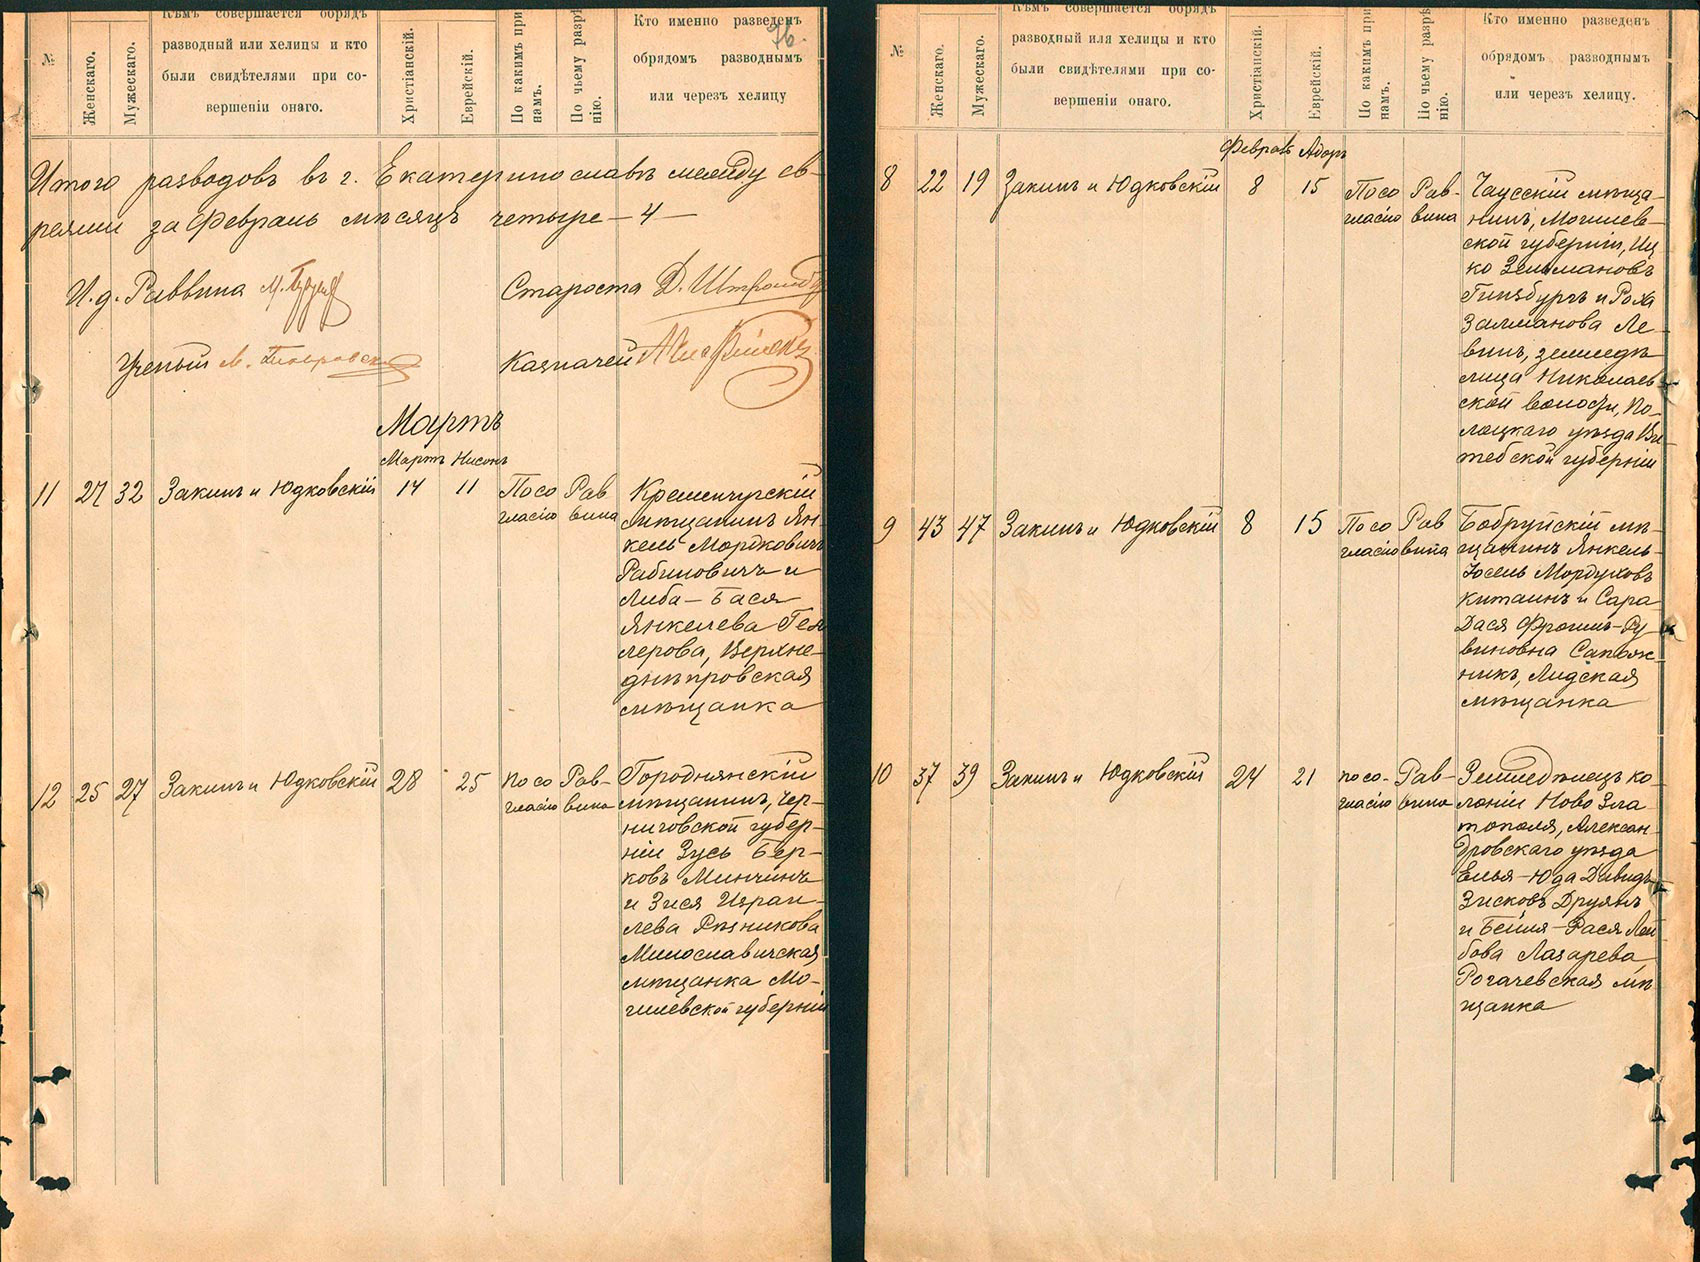 76.
№
Женскаго.
Мужескаго.
Кѣмъ совершается обрядъ
разводный или хелицы и кто
были свидѣтелями при со-
вершеніи онаго.
Христіанскій.
Еврейскій.
По какимъ при
намъ.
По чьему разрѣ
нію.
Кто именно разведенъ
обрядомъ разводнымъ
или черезъ хелицу
Итого разводовъ въ г. Екатеринославѣ между ев-
реями за февраль мѣсяцъ четыре — 4 —
И. д. Раввина
Староста Д.
Ученый
Казначей
Мартъ
Мартъ Нисонъ
11 27 32 Закинъ и Юдковскій 14 11
По со
гласію
Рав
вина
Кременчугскій
мѣщанинъ Ян-
кель Мордковичъ
Рабиновичъ и
Либа — Бася
Янкелева Гел
лерова, Верхне-
днѣпровская
мѣщанка
12 25 27 Закинъ и Юдковскій 28 25
по со
гласію
Рав-
вина
Городнянскій
мѣщанинъ, Чер-
ниговской губер-
ніи Зусь Бер-
ковъ Минчинъ
и Зися Израи-
лева Рѣзникова
Милославичская
мѣщанка Мо-
гилевской губерніи
№
Женскаго.
Мужескаго.
Кѣмъ совершается обрядъ
разводный или хелицы и кто
были свидѣтелями при со-
вершеніи онаго.
Христіанскій.
Еврейскій.
По какимъ при
намъ.
По чьему разрѣ
нію.
Кто именно разведенъ
обрядомъ разводнымъ
или черезъ хелицу.
Февраль Адоръ
8 22 19 Закинъ и Юдковскій 8 15
По со
гласію
Рав-
вина
Чаусскій мѣща-
нинъ, Могилев-
ской губерніи, Иц
ко Зельмановъ
Гинзбургъ и Роха
Залманова Ле-
винъ, земледѣ
лица Николаев
ской волости, По-
лоцкаго уѣзда Ви-
тебской губерніи
9 43 47 Закинъ и Юдковскій 8 15
По со
гласію
Рав
вина
Бобруйскій мѣ-
щанинъ Янкель-
Юсель Мордуховъ
Китаинъ и Сара
Дася Фроимъ-Ру
виновна Сапож-
никъ, Лидская
мѣщанка
10 37 39 Закинъ и Юдковскій 24 21
по со-
гласію
Рав-
вина
Земледѣлецъ ко-
лоніи Ново Зла
тополя, Алексан-
дровскаго уѣзда
Елья-Юда Давидъ
Зисковъ Друянъ
и Бейля-Рася Лей
бова Лазарева,
Рогачевская мѣ-
щанка